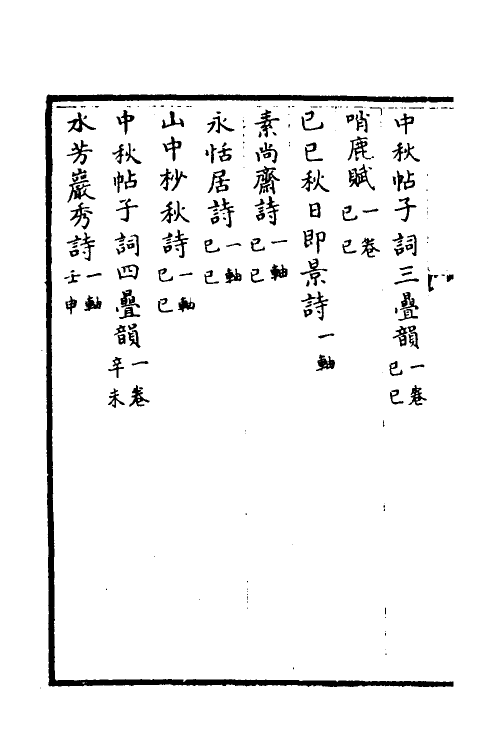 中秋帖子詞三疊韻一卷己巳
哨鹿賦一卷己巳
己巳秋日即景詩一軸
素尚齋詩一軸己巳
永恬居詩一軸己巳
山中杪秋詩一軸己巳
中秋帖子詞四疊韻一卷辛未
水芳巖秀詩一軸壬申